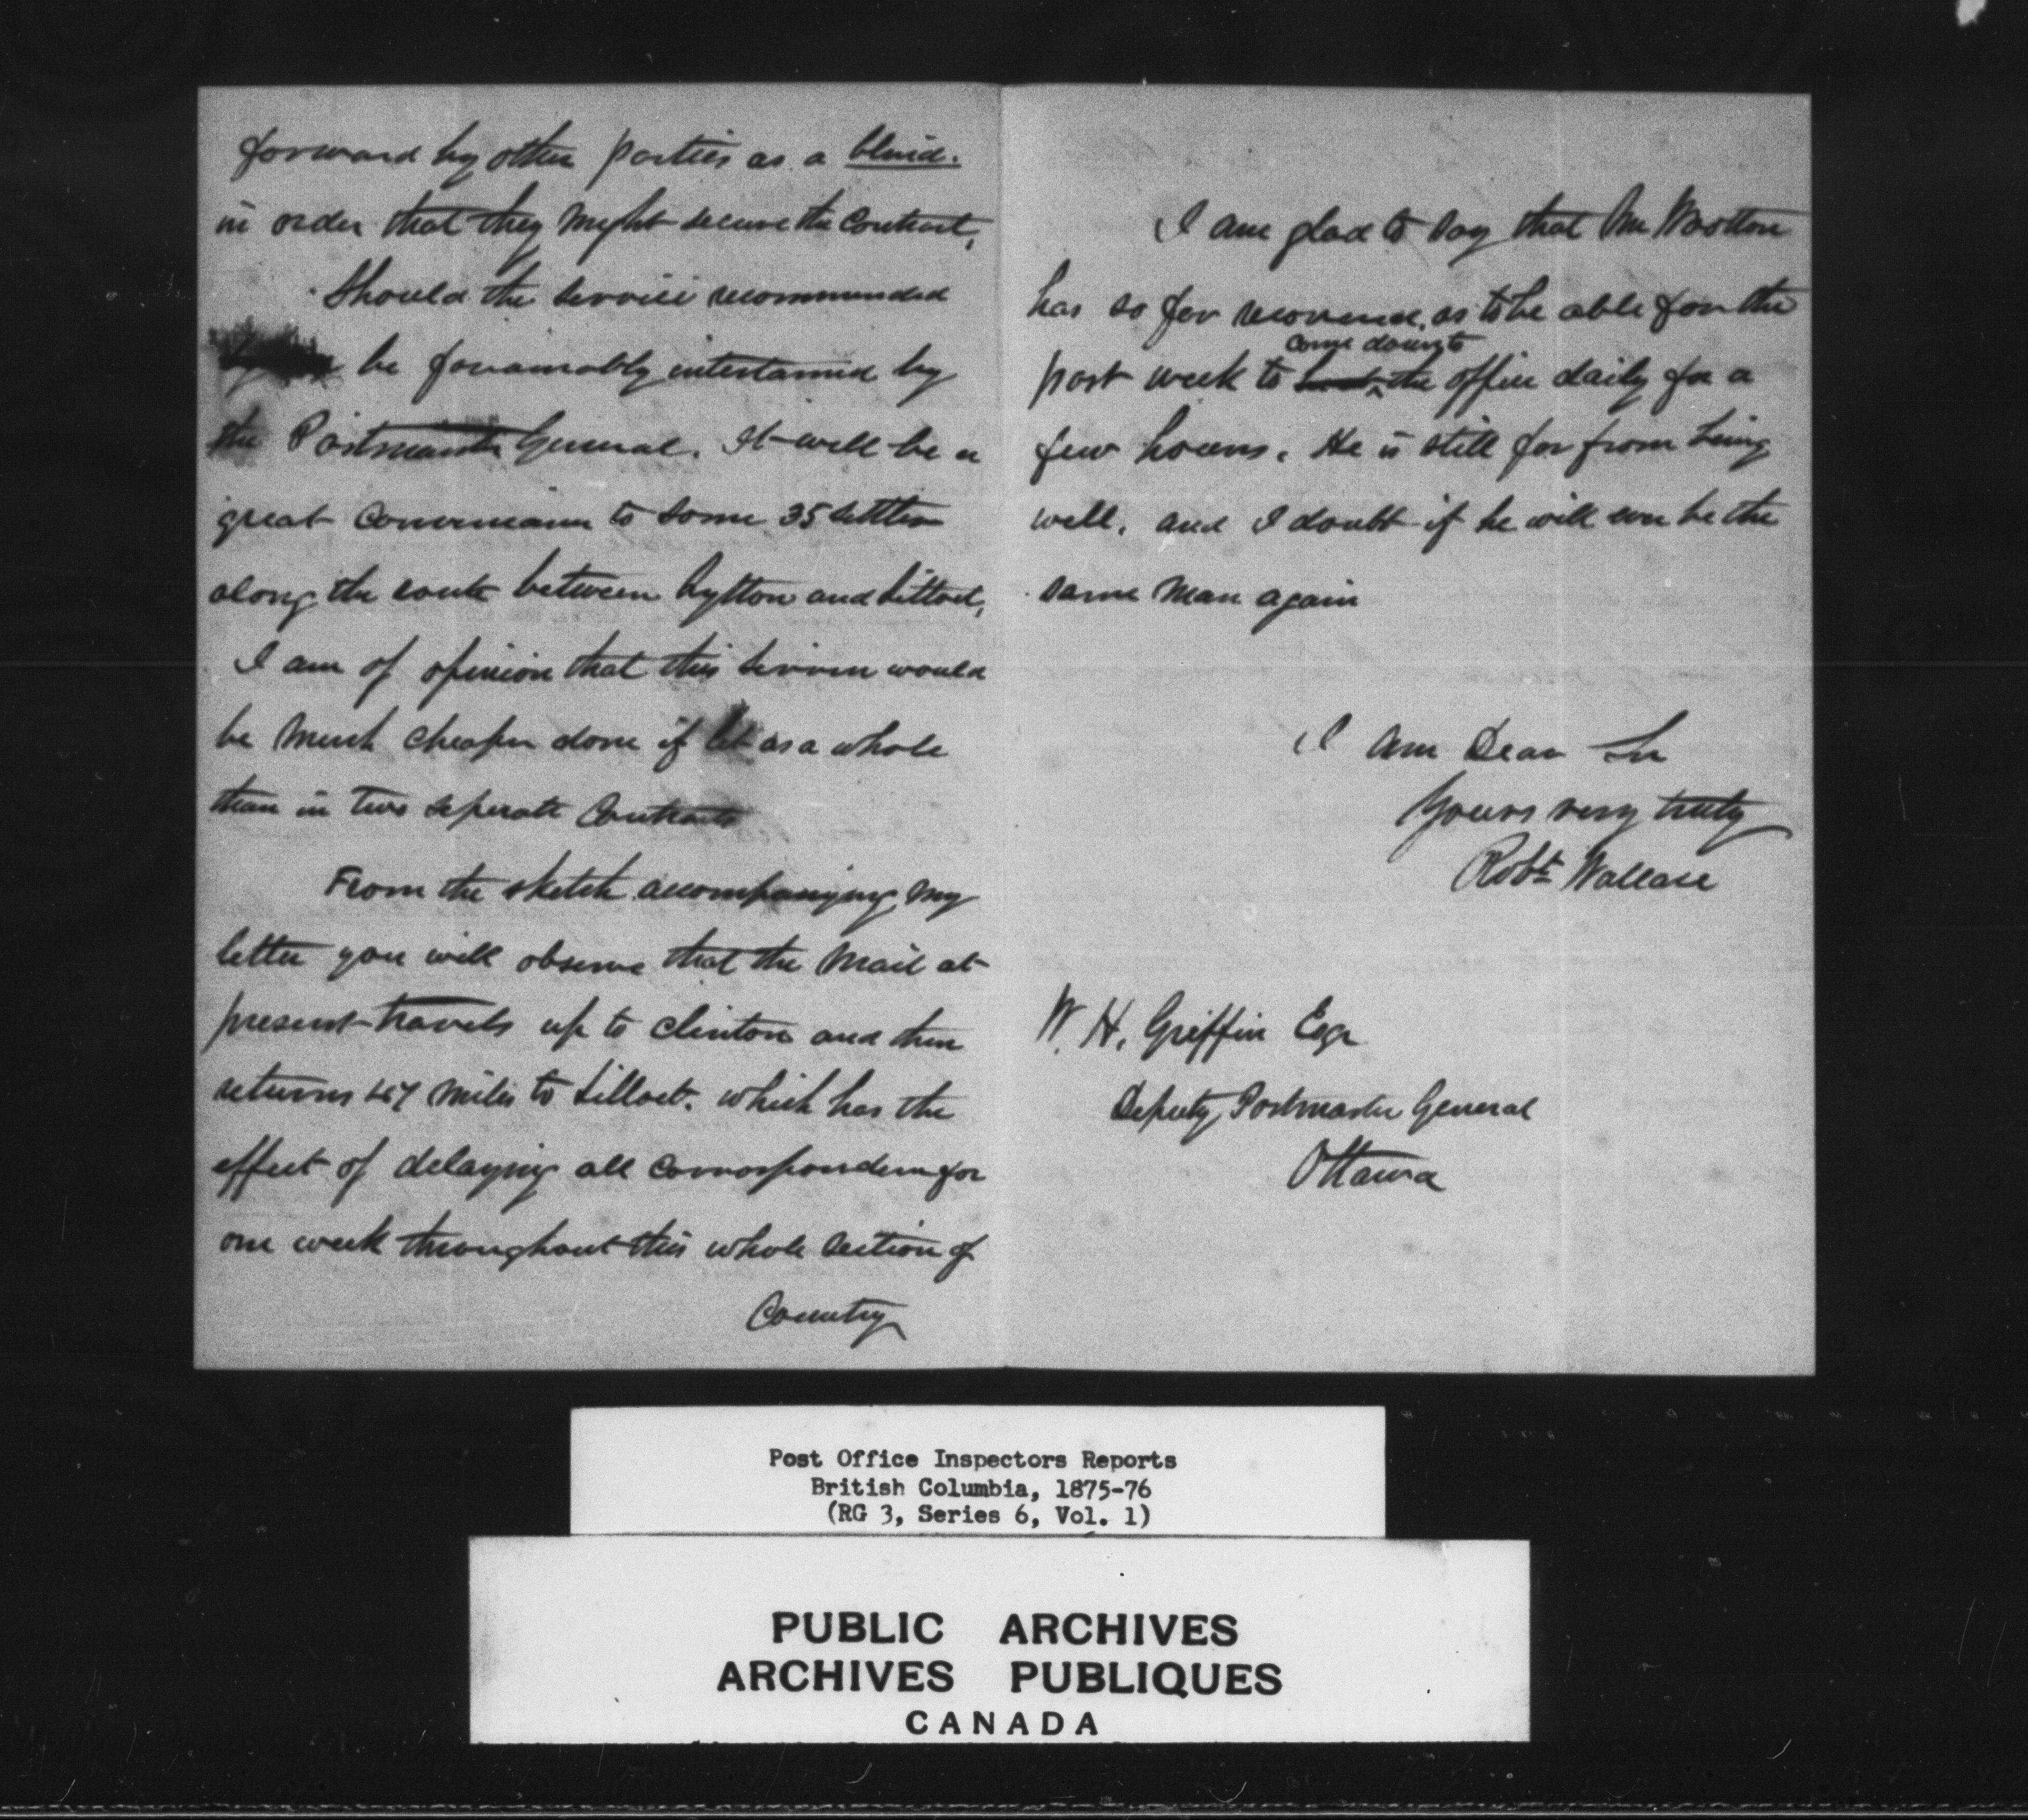 forward by other parties as a blind.
in order that they might secure the Contract.
Should the service recommended
be favourably intertained by
the Postmaster General. It will be a
great Convenience to some 35 settlers
along the route between Lytton and Lilloet,
I am of opinion that this service would
be much cheaper done if let as a whole
than in two seperate Contracts
From the sketch accompanying my
letter you will observe that the Mail at
present travels up to Clinton and then
returns 47 miles to Lilloet. which has the
effect of delaying all correspondence for
one week throughout this whole section of
Country
I am glad to say that Mr Wootton
has so far recovered, as to be able for the
come down to
past week to the office daily for a
few hours. He is still far from being
well. and I doubt if he will ever be the
same man again
I am Dear Sir
Yours very truly
Robt Wallace
W. H. Griffin Esqr
Deputy Postmaster General
Ottawa
Post Office Inspectors Reports
British Columbia, 1875-76
(RG 3, Series 6, Vol. 1)
PUBLIC ARCHIVES
ARCHIVES PUBLIQUES
CANADA